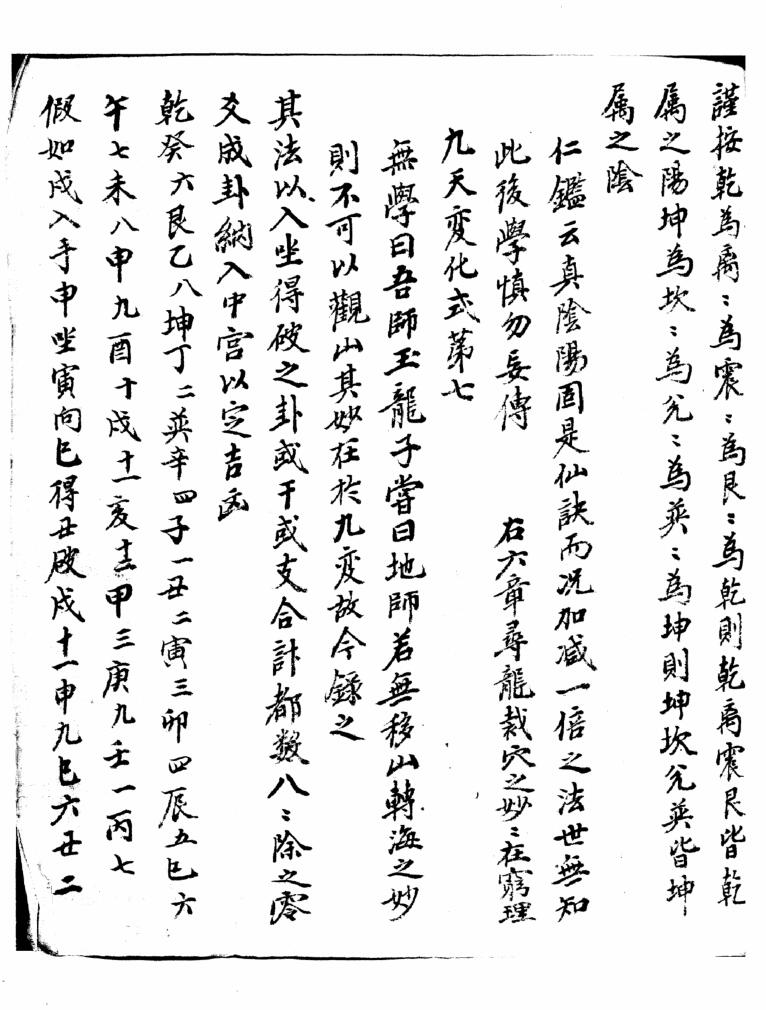 謹按乾為离〻為震〻為艮〻為乾則乾离震艮皆乾
属之陽坤為坎〻為兌〻為巽〻為坤則坤坎兌巽皆坤
属之陰
仁鑑云真陰陽固是仙訣而况加减一倍之法世無知
此後學慎勿妄傳　　右六章尋龍裁穴之妙〻在窮理
九天変化式第七
無學曰吾師玉龍子嘗曰地師若無移山轉海之妙
則不可以觀山其妙在於九変故今錄之
其法以入坐得破之卦或干或支合計都数八〻除之零
爻成卦納入中宮以定吉凶
乾癸六艮乙八坤丁二巽辛四子一丑二寅三卯四辰五巳六
午七未八申九酉十戌十一亥十二甲三庚九壬一丙七
假如戌入手申坐寅向巳得丑破戌十一申九巳六丑二